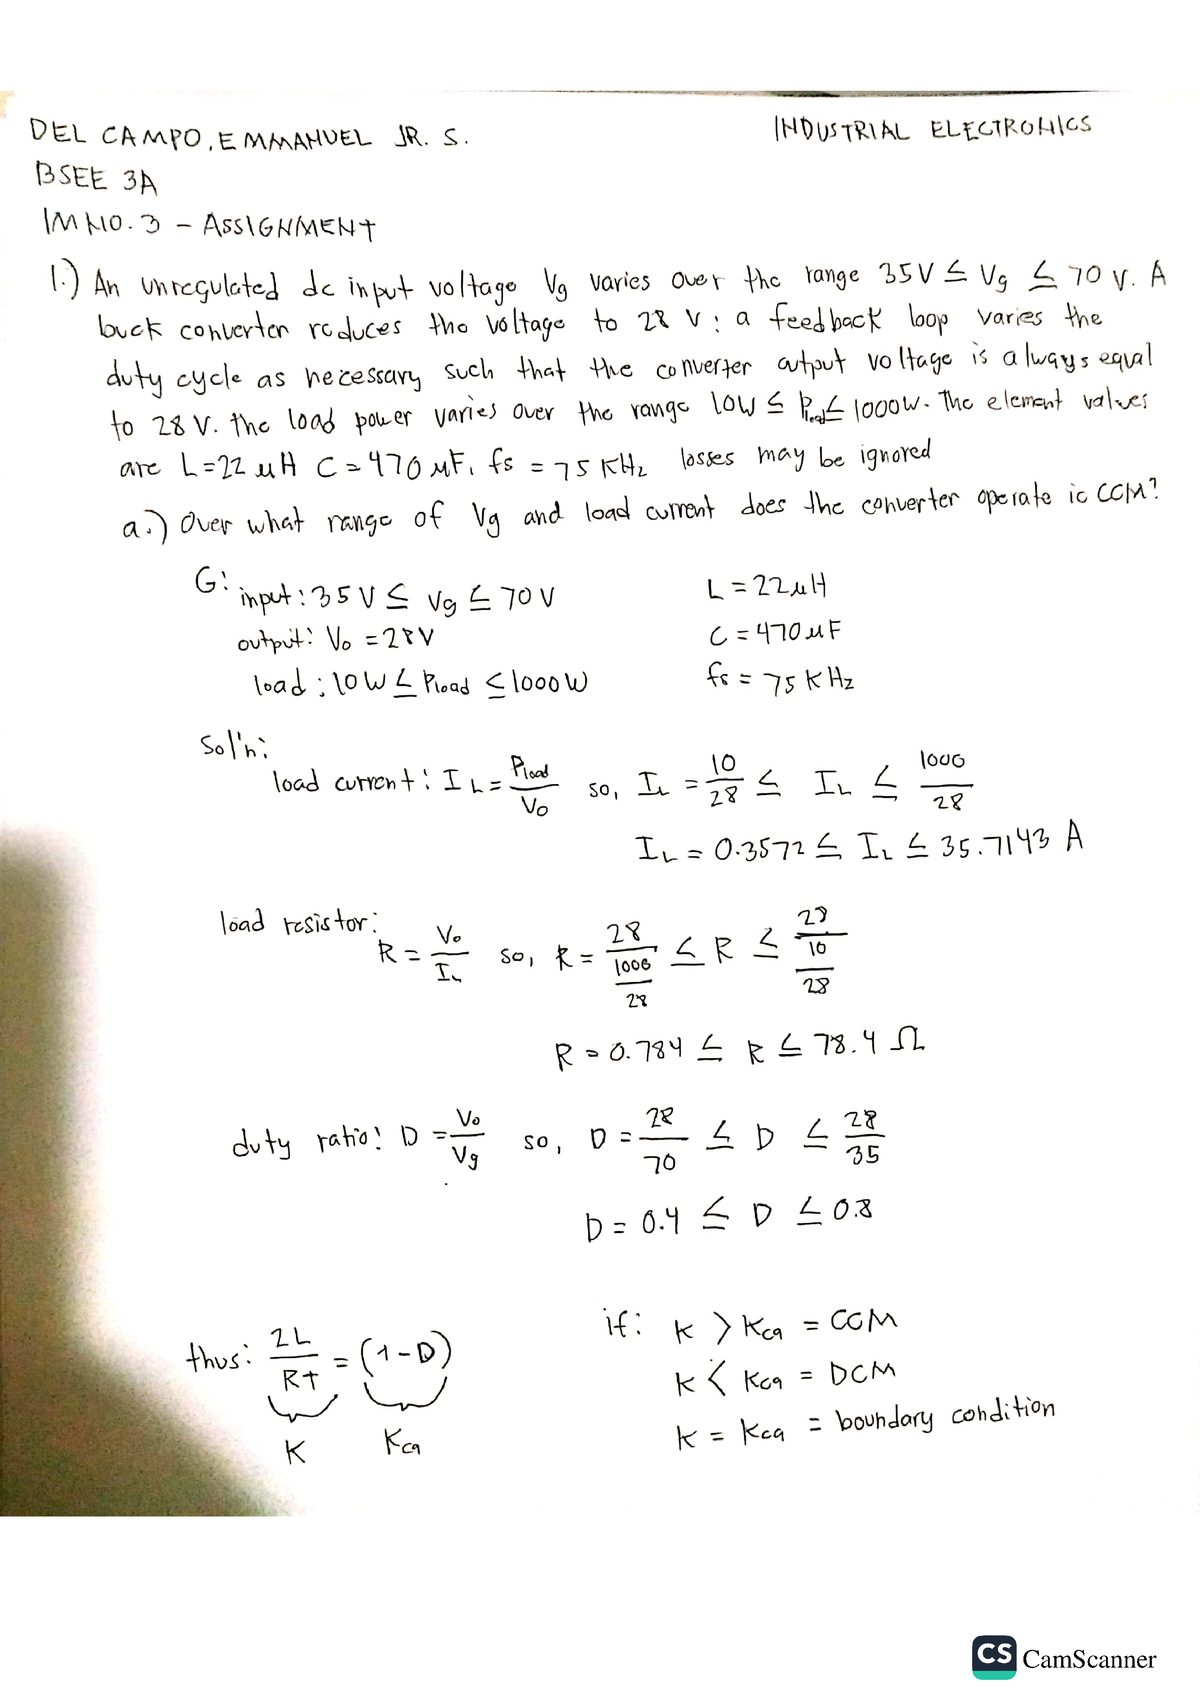 DEL CAMPO, EMMANUEL JR. S.
INDUSTRIAL ELECTRONICS
BSEE 3A
IM NO. 3 - ASSIGNMENT
1.) An unregulated dc input voltage Vg varies over the range 35V ≤ Vg ≤ 70 V. A
buck converter reduces the voltage to 28 V; a feedback loop varies the
duty cycle as necessary such that the converter output voltage is always equal
to 28 V. the load power varies over the range 10W ≤ Pload ≤ 1000W. The element values
are L=22 μH C=470 μF, fs = 75 KHz losses may be ignored
a.) Over what range of Vg and load current does the converter operate ic CCM?
G: input: 35V ≤ Vg ≤ 70V
L = 22μH
output: Vo = 28V
C = 470μF
load: 10W ≤ Pload ≤ 1000W
fs = 75 KHz
Sol'n:
load current: IL = Pload/Vo so, IL = 10/28 ≤ IL ≤ 1000/28
IL = 0.3572 ≤ IL ≤ 35.7143 A
load resistor: R = Vo/IL so, R = 28/(1000/28) ≤ R ≤ 28/(10/28)
R = 0.784 ≤ R ≤ 78.4 Ω
duty ratio: D = Vo/Vg so, D = 28/70 ≤ D ≤ 28/35
D = 0.4 ≤ D ≤ 0.8
thus: 2L/RT = (1-D)
K Kca
if: K > Kca = CCM
K < Kca = DCM
K = Kca = boundary condition
CS CamScanner